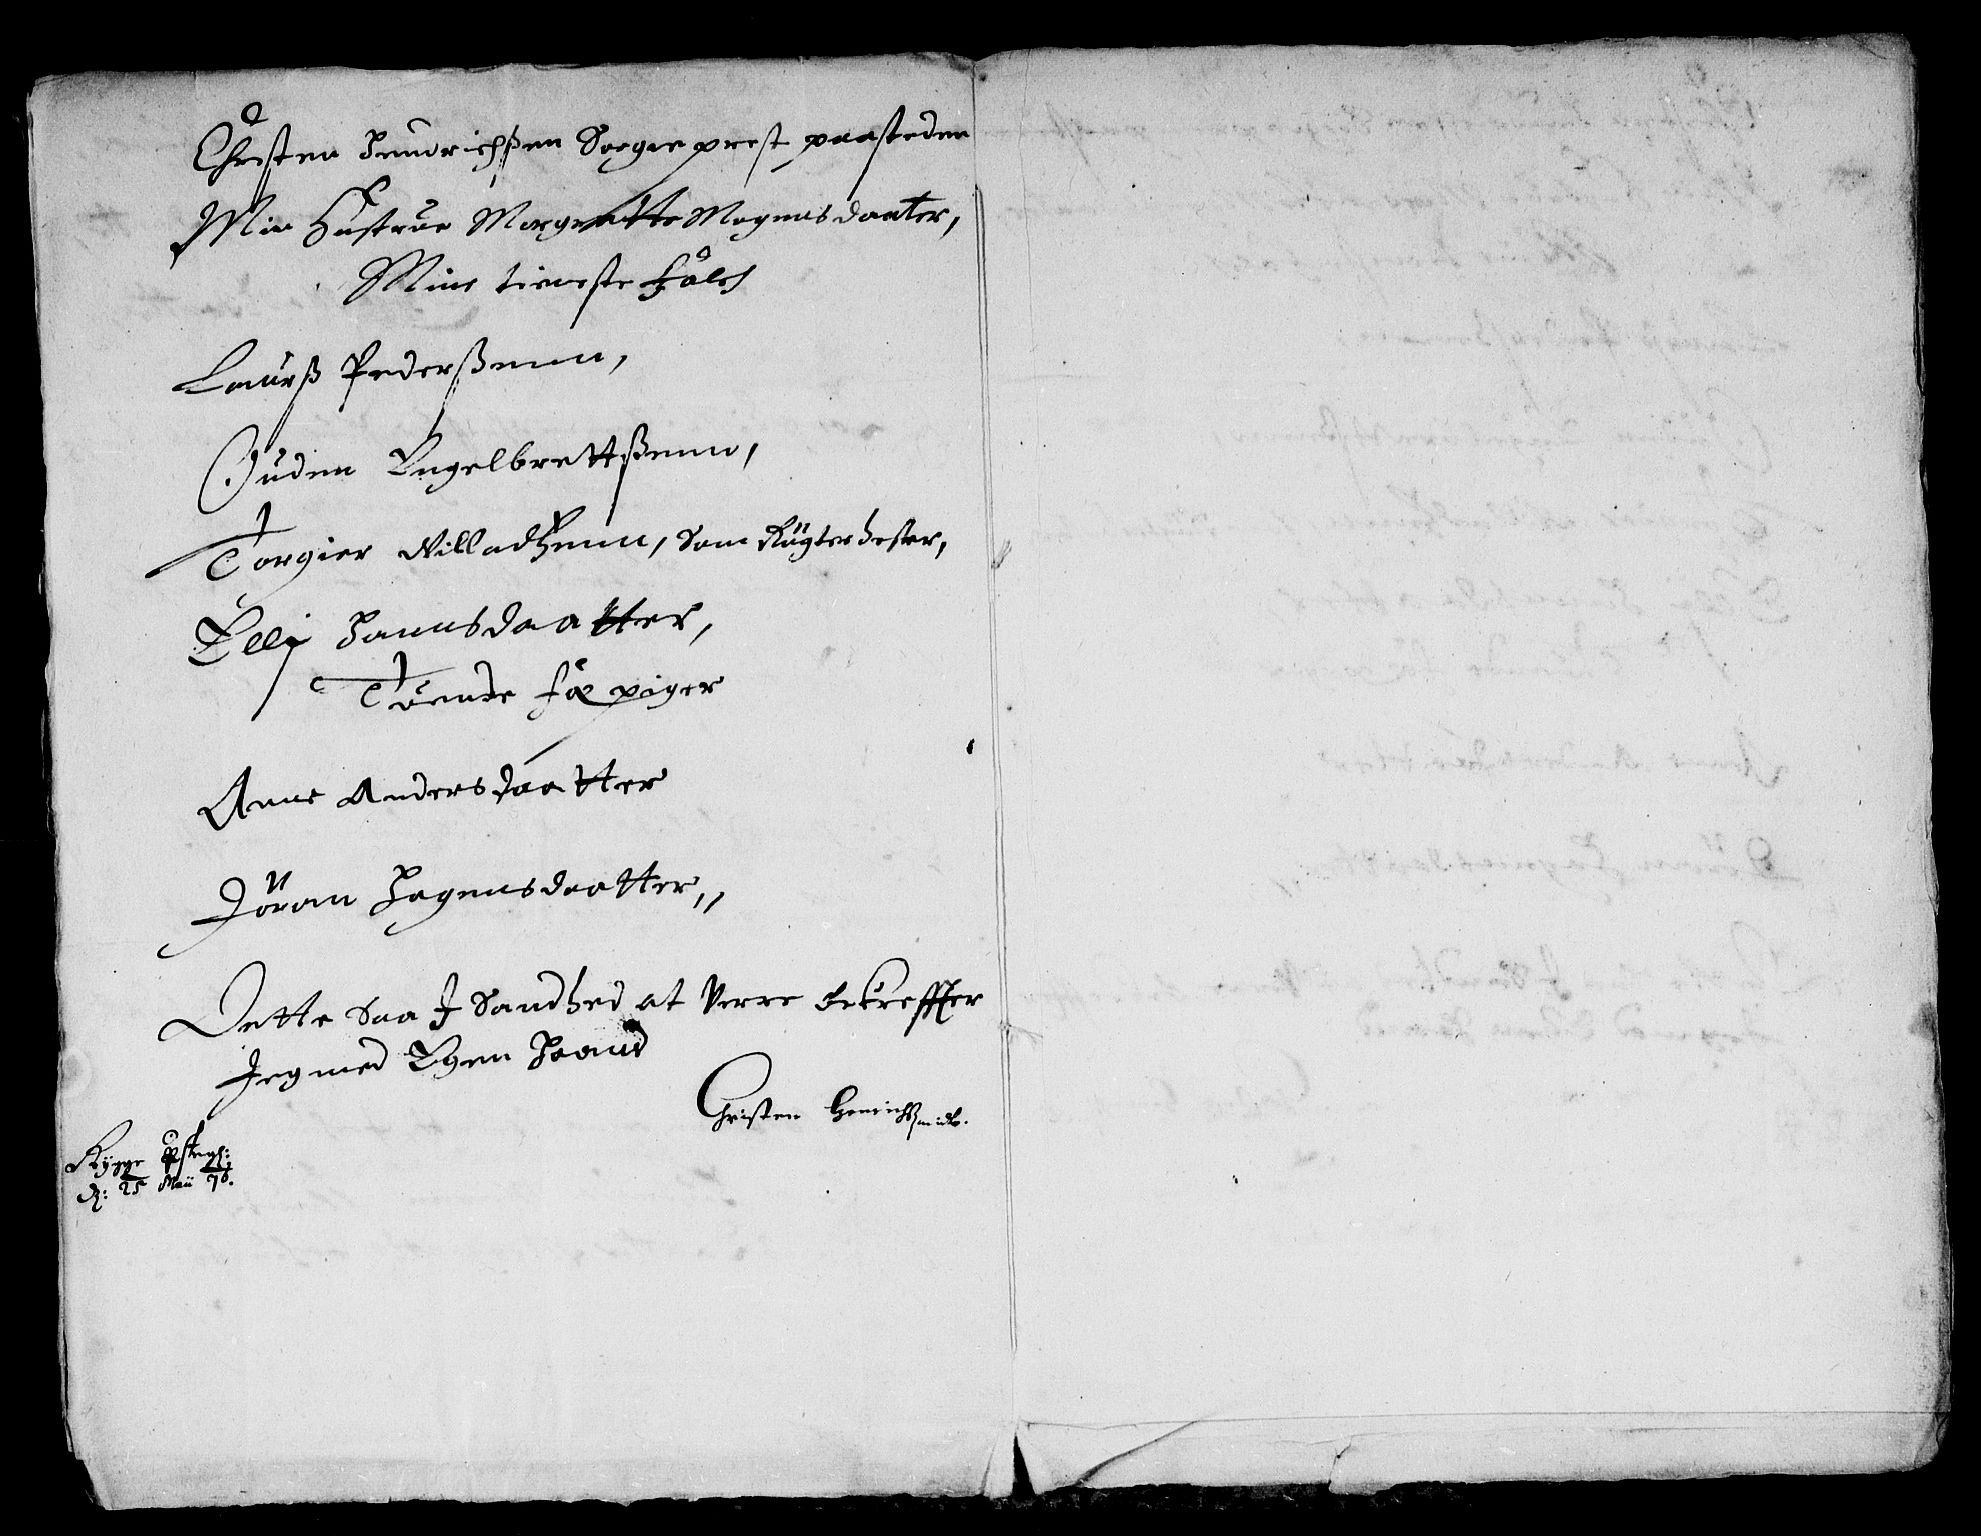 Christen Hendrichßen Sogne prest paasteden
Min Hustrue Margrette Mognus daater,
Mine tieneste folch
Laurß Pederßenn,
Guden Engelbrettßenn,
Torgier Willadßenn, som Rügter hester,
Elli Hansdaatter,
Tuende fæ piger
Anne Andersdaatter
Jöran Hagensdaatter,,
Dette saa J Sandhed at Verre bekreffter
Jeg med Egen Haand
Christen Henrichß
Rygge
d: 25 Maii 76.